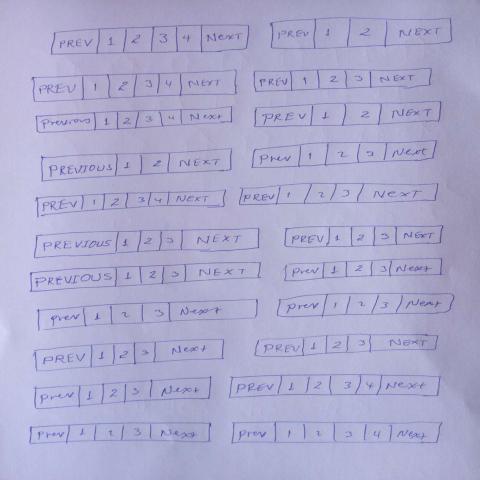 PREV 1 2 3 4 Next
PREV 1 2 NEXT
PREV 1 2 3 4 NEXT
PREV 1 2 3 NEXT
Previous 1 2 3 4 Next
PREV 1 2 NEXT
PREVIOUS 1 2 NEXT
Prev 1 2 3 Next
PREV 1 2 3 4 NEXT
PREV 1 2 3 Next
PREVIOUS 1 2 3 NEXT
PREV 1 2 3 NEXT
PREVIOUS 1 2 3 NEXT
prev 1 2 3 Next
prev 1 2 3 Next
prev 1 2 3 Next
PREV 1 2 3 Next
PREV 1 2 3 NEXT
prev 1 2 3 Next
PREV 1 2 3 4 Next
Prev 1 2 3 Next
prev 1 2 3 4 Next